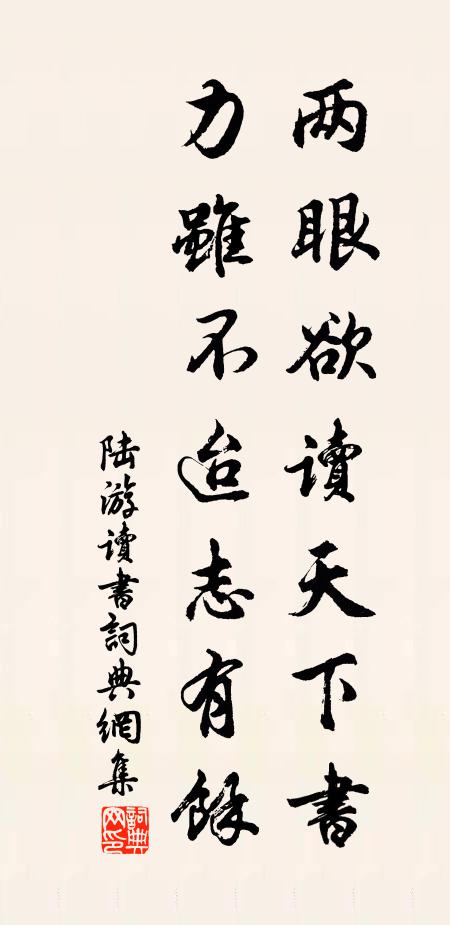 两眼欲讀天下書
力雖不迨志有餘
陆游讀書詞典網集
詞典网印